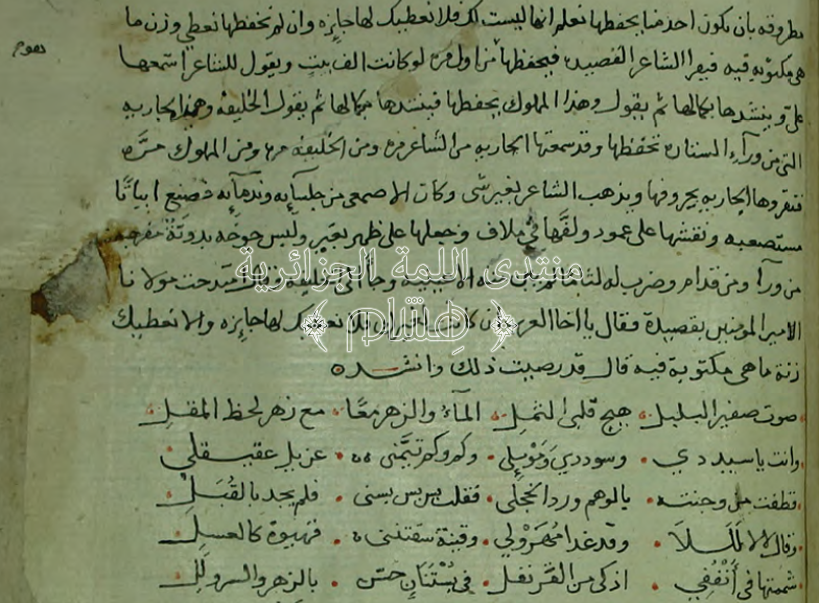 مطروقه بان يكون احد منا يحفظها نعلم انها ليست لك فلا نعطيك لها جايزه وان لم نحفظها نعطي وزن ما
هي مكتوبه فيه فيقرا الشاعر القصيده فيحفظها من اول مره لو كانت الف بيت ويقول للشاعر اسمعها
علي وينشدها بكمالها ثم يقول وهذا المملوك يحفظها فينشدها بكمالها ثم يقول الخليفه وهذه الجاريه
التي من ورآء الستاره تحفظها وقد سمعتها الجاريه من الشاعر مره ومن الخليفه مره ومن المملوك مره
فتقروها الجاريه بحروفها ويذهب الشاعر بغير شي وكان الاصمعي من جلسآيه وندمآيه فصنع ابياتا
مستصعبه ونقشها على عمود ولفها في ملاف وجعلها على ظهر بعير ولبس جوخه بدويه مفرجه
من ورآ ومن قدام وضرب له لثاما
الامير المومنين بقصيدة فقال يا اخا العرب ان كانت لغيرك فلا نعطيك لها جايزه والا نعطيك
زنة ما هي مكتوبة فيه قال قد رضيت ذلك وانشد
صوت صفير البلبل هيج قلبي الثمل المآء والزهر معا مع زهر لحظ المقل
وانت يا سيد دي وسوددي وموللي وكم وكم تيمني عزيل عقيقلي
قطفت من وجنته باللوهم ورد الخجلي فقلت بس بس بسني فلم يجد بالقبل
وقال لا لا للا وقد غدا مهرولي وفتية سقتنني قهيوة كالعسل
شممتها في أنففي اذكى من القرنفل في بستنان حسن بالزهر والسرولل